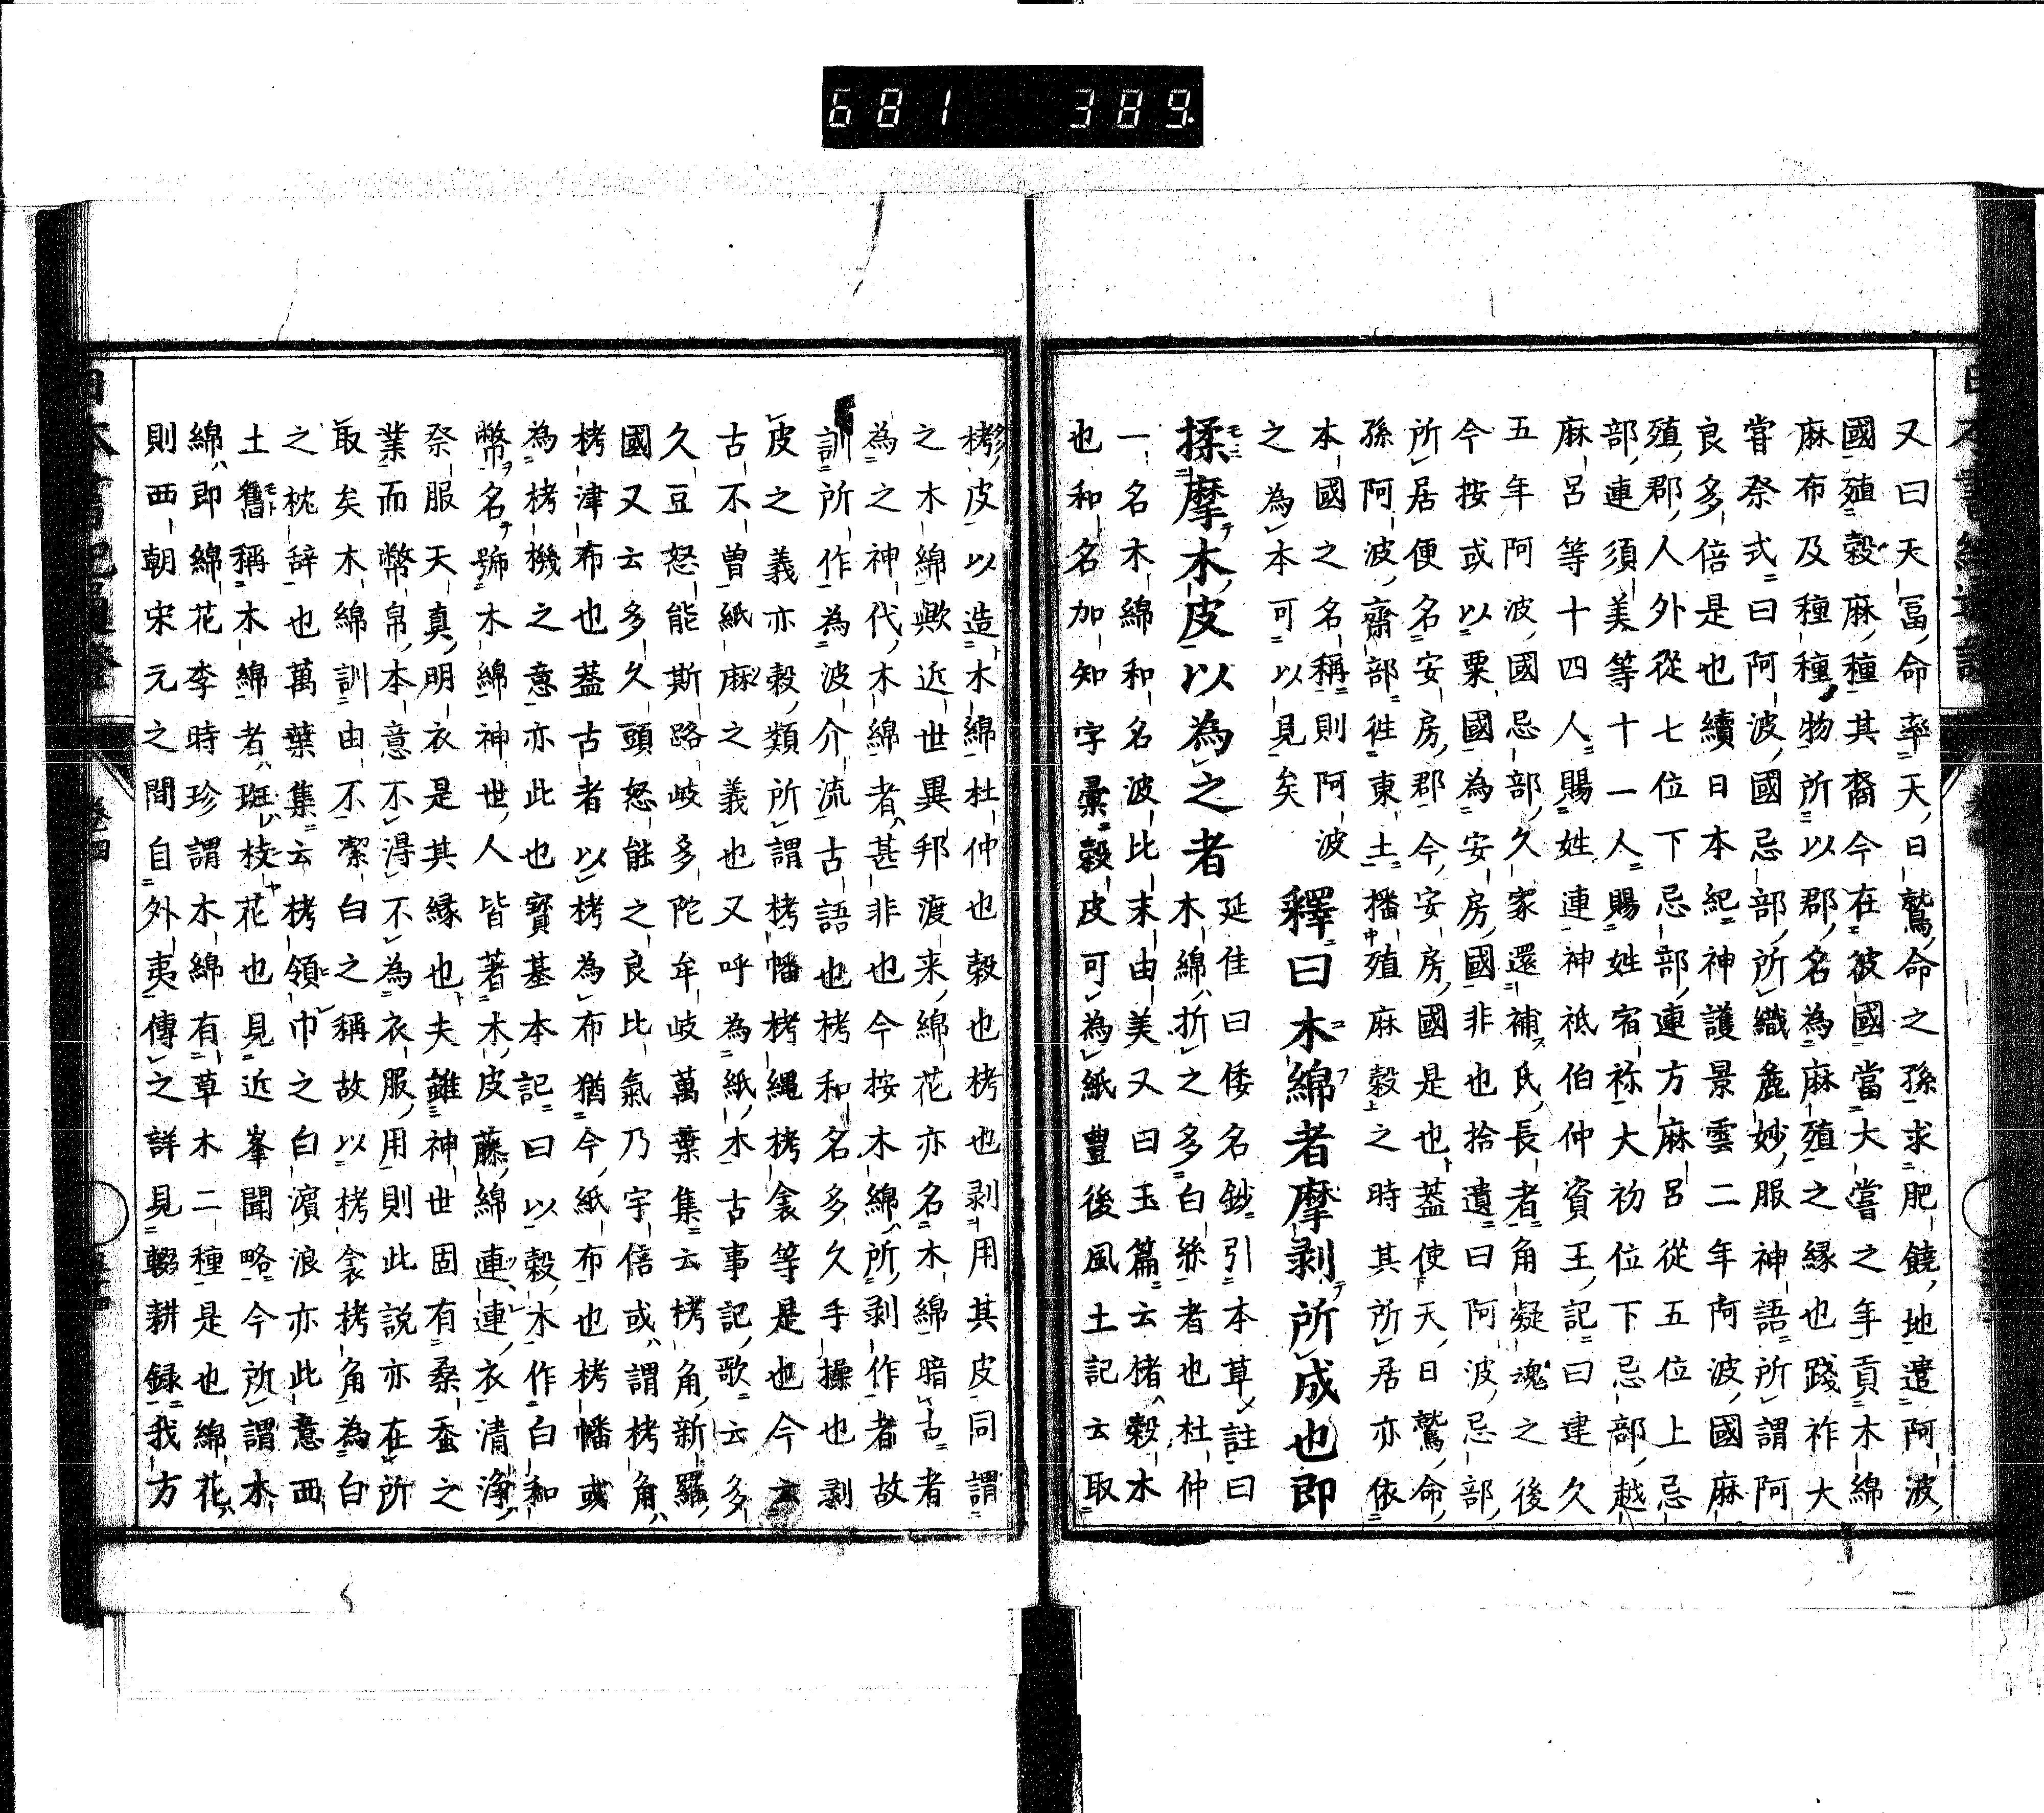 681 389
又曰天冨命率天日鷲命之孫求肥饒地遣阿波
國殖穀麻種其裔今在彼國當大嘗之年貢木綿
麻布及種種物所以郡名為麻殖之縁也踐祚大
甞祭式曰阿波國忌部所織麁妙服神語所謂阿
良多倍是也續日本紀神護景雲二年阿波國麻
殖郡人外從七位下忌部連方麻呂從五位上忌
部連須美等十一人賜姓宿祢大初位下忌部越
麻呂等十四人賜姓連神祇伯仲資王記曰建久
五年阿波國忌部久家還補氏長者角凝魂之後
今按或以粟國為安房國非也拾遺曰阿波忌部
所居便名安房郡今安房國是也蓋使天日鷲命
孫阿波齋部徃東土播殖麻穀之時其所居亦依
本國之名稱則阿波
之為本可以見矣 釋曰木綿者摩剥所成也即
揉摩木皮以為之者 延佳曰倭名鈔引本草註曰
木綿折之多白絲者也杜仲
一名木綿和名波比末由美又曰玉篇云楮穀木
也和名加知字彙穀皮可為紙豊後風土記云取
栲皮以造木綿杜仲也穀也栲也剥用其皮同謂
之木綿歟近世異邦渡来綿花亦名木綿暗古者
為之神代木綿者甚非也今按木綿所剥作者故
訓所作為波介流古語也栲和名多久手操也剥
皮之義亦穀類所謂栲幡栲繩栲衾等是也今云
古不曽紙麻之義也又呼為紙木古事記歌云多
久豆怒能斯路岐多陀牟岐萬葉集云栲角新羅
國又云多久頭怒能之良比氣乃宇倍或謂栲角
栲津布也蓋古者以栲為布猶今紙布也栲幡或
為栲機之意亦此也寳基本記曰以穀木作白和
幣名號木綿神世人皆著木皮藤綿連連衣清浄
祭服天真明衣是其縁也夫雖神世固有桑蚕之
業而幣帛本意不得不為衣服用則此説亦在所
取矣木綿訓由不潔白之稱故以栲衾栲角為白
之枕辞也萬葉集云栲領巾之白濱浪亦此意西
土舊稱木綿者斑枝花也見近峯聞略今所謂木
綿即綿花李時珍謂木綿有草木二種是也綿花
則西朝宋元之間自外夷傳之詳見輟耕録我方